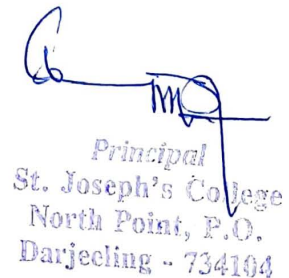 Principal
St. Joseph's College
North Point, P.O.
Darjeeling - 734104